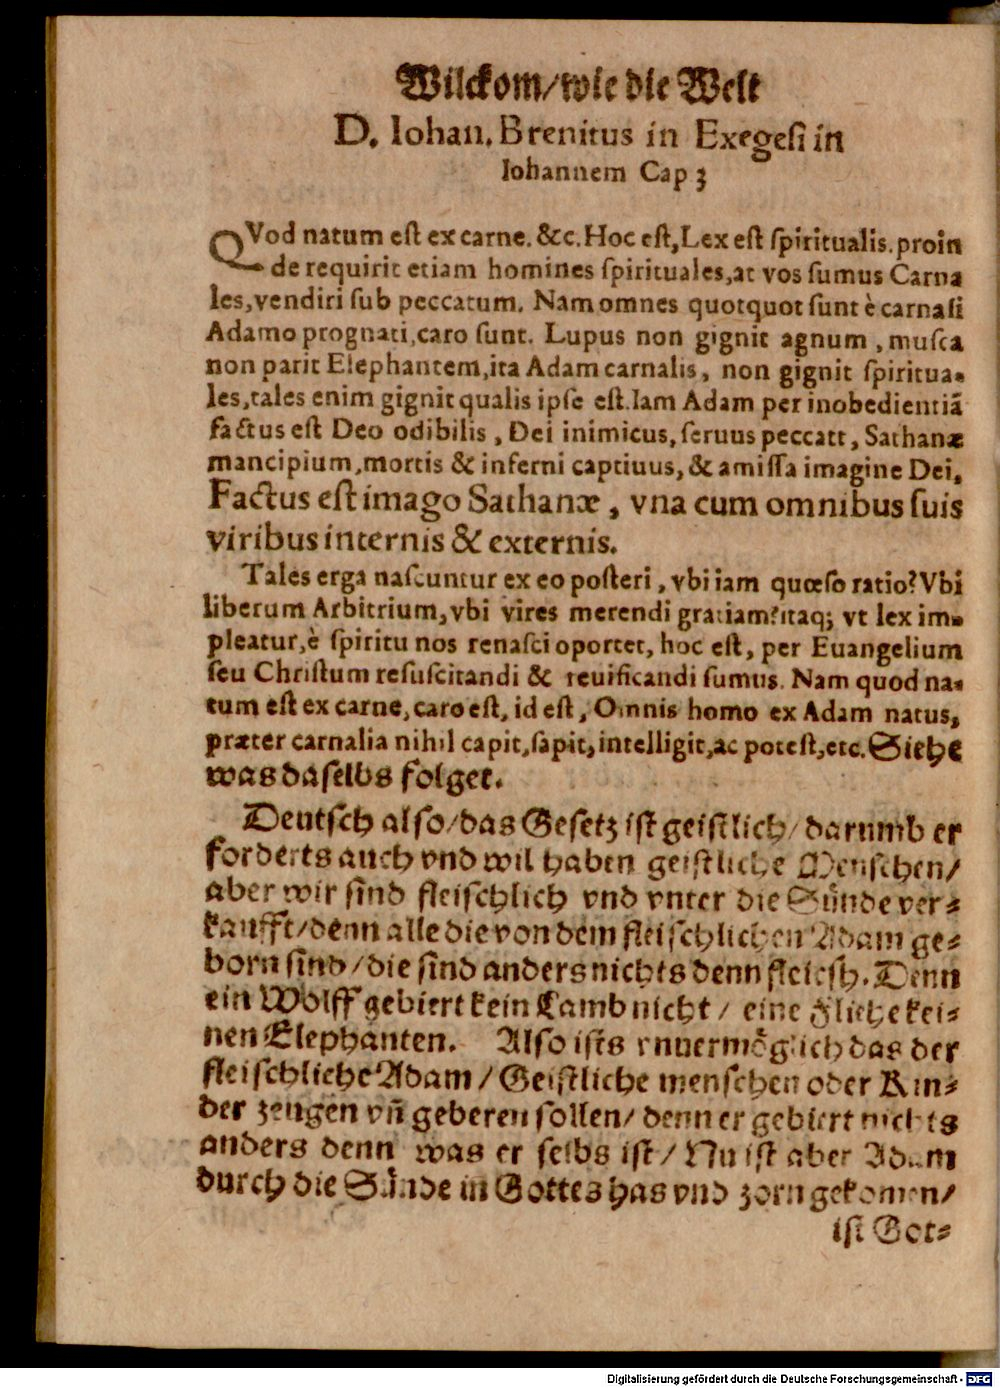 Wilckom/wie die Welt
D. Iohan. Brenitus in Exegesi in
Iohannem Cap 3
QVod natum est ex carne. &c. Hoc est, Lex est spiritualis. proin
de requirit etiam homines spirituales, at vos sumus Carna
les, vendiri sub peccatum. Nam omnes quotquot sunt è carnasi
Adamo prognati, caro sunt. Lupus non gignit agnum, musca
non parit Elephantem, ita Adam carnalis, non gignit spiritua-
les, tales enim gignit qualis ipse est. Iam Adam per inobedientiã
factus est Deo odibilis, Dei inimicus, seruus peccatt, Sathanæ
mancipium, mortis & inferni captiuus, & amissa imagine Dei,
Factus est imago Sathanæ, vna cum omnibus suis
viribus internis & externis.
Tales erga nascuntur ex eo posteri, vbi iam quæso ratio? Vbi
liberum Arbitrium, vbi vires merendi gratiam? itaq; vt lex im-
pleatur, è spiritu nos renasci oportet, hoc est, per Euangelium
seu Christum resuscitandi & reuificandi sumus. Nam quod na-
tum est ex carne, caro est, id est, Omnis homo ex Adam natus,
præter carnalia nihil capit, sapit, intelligit, ac potest, etc. Siehe
was daselbs folget.
Deutsch also/das Gesetz ist geistlich/ darumb er
forderts auch vnd wil haben geistliche Menschen/
aber wir sind fleischlich vnd vnter die Sünde ver-
kaufft/denn alle die von dem fleischlichen Adam ge-
born sind/die sind anders nichts denn fleiesh. Denn
ein Wolff gebiert kein Lamb nicht/ eine Fliehe kei-
nen Elephanten. Also ists vnuermöglich das der
fleischliche Adam/Geistliche menschen oder Kin-
der zeugen vñ geberen sollen/ denn er gebiert nichts
anders denn was er selbs ist/ Nu ist aber Adam
durch die Sünde in Gottes has vnd zorn gekomen/
ist Got-
Digitalisierung gefördert durch die Deutsche Forschungsgemeinschaft - DFG